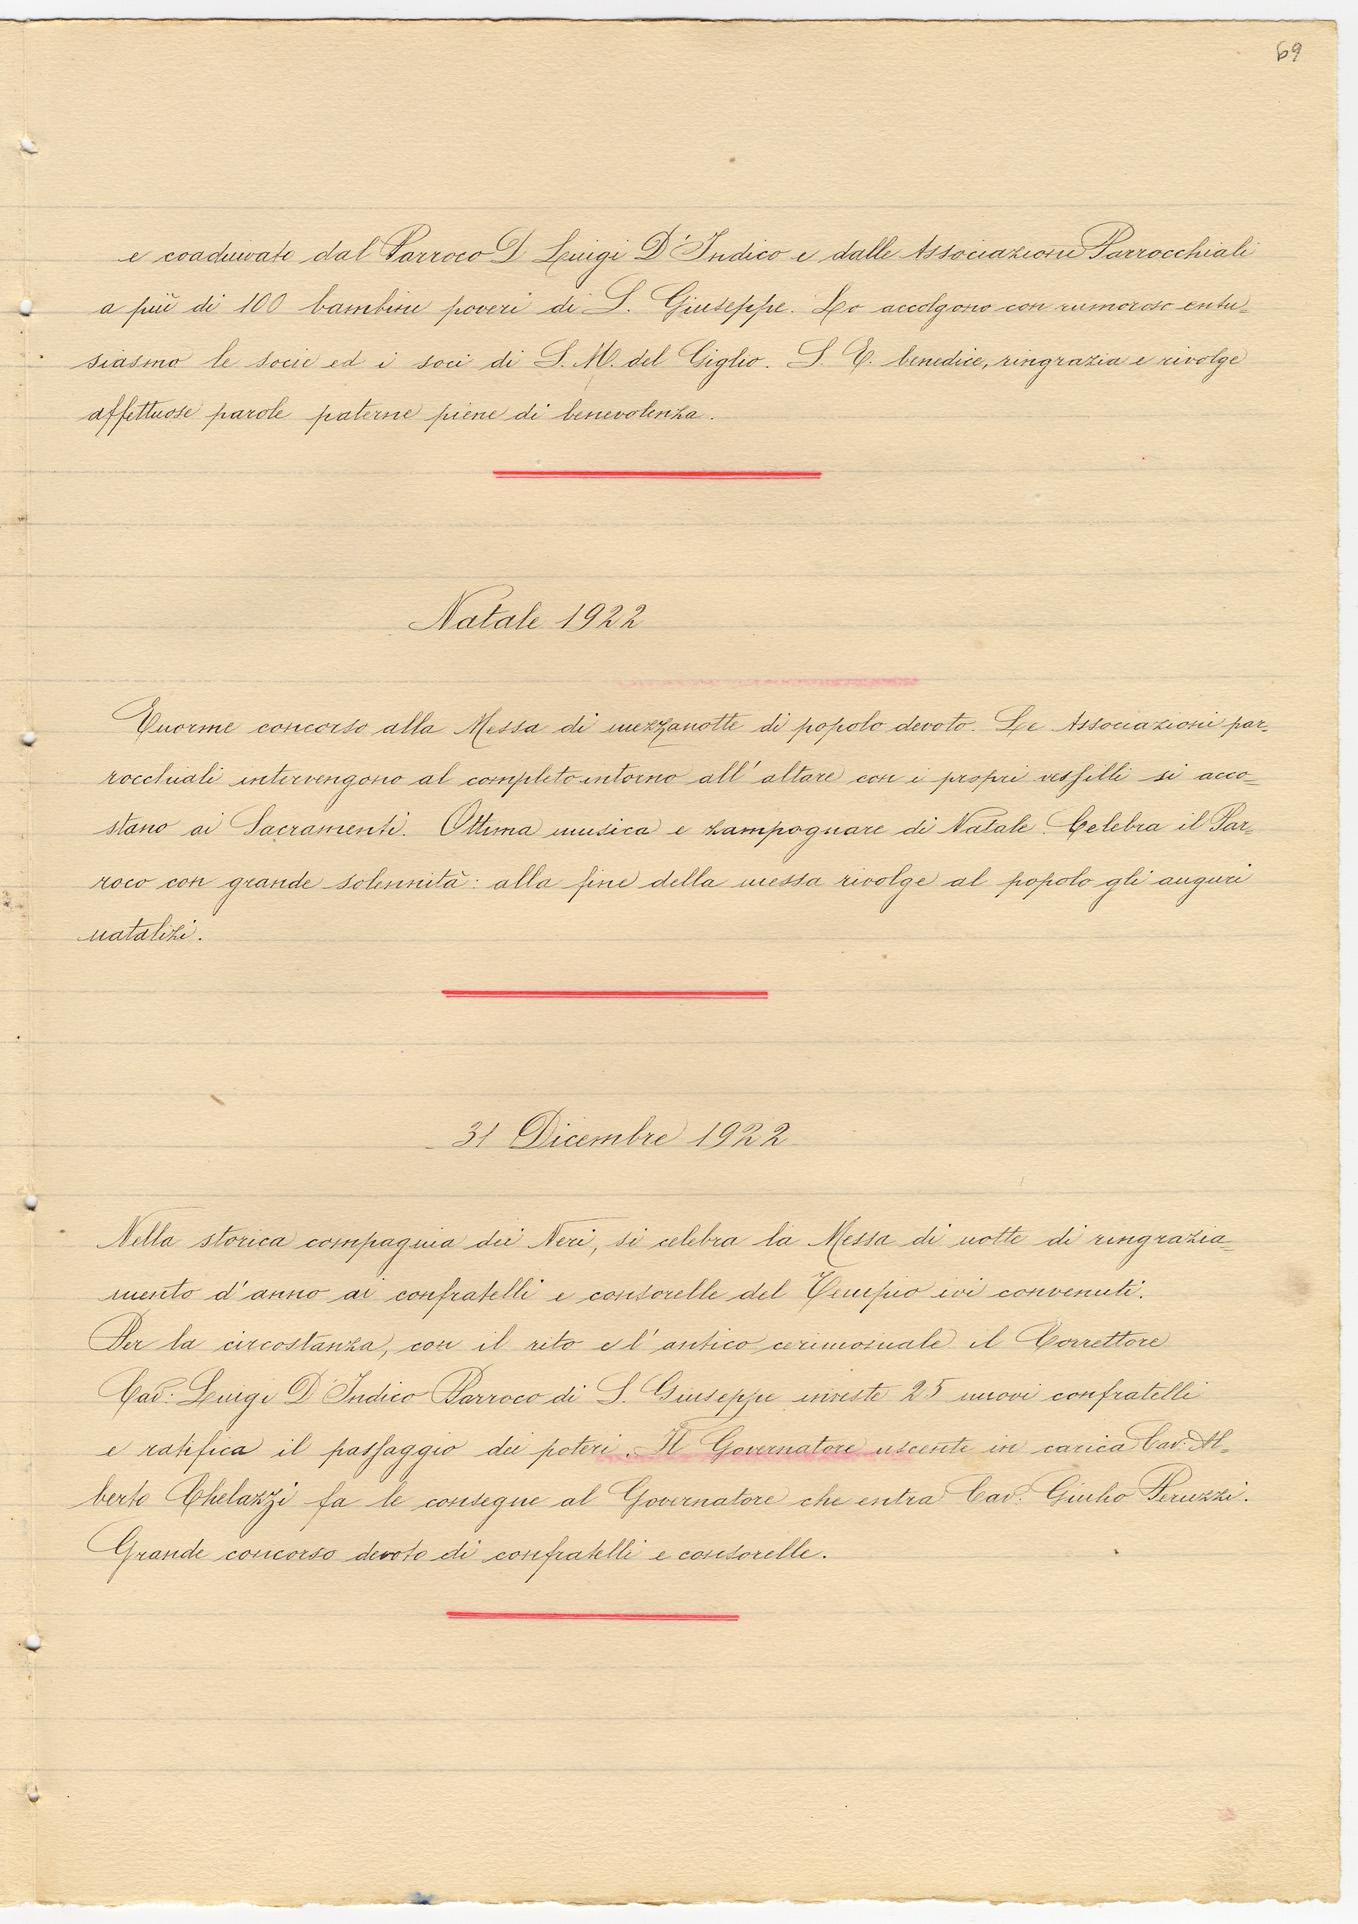 69
e coadiuvato dal Parroco D Luigi D'Indico e dalle Associazioni Parrocchiali
a più di 100 bambini poveri di S. Giuseppe. Lo accolgono con rumoroso entu=
siasmo le socie ed i soci di S. M. del Giglio. S. E. benedice, ringrazia e rivolge
affettuose parole paterne piene di benevolenza.
Natale 1922
Enorme concorso alla Messa di mezzanotte di popolo devoto. Le Associazioni par=
rocchiali intervengono al completo intorno all'altare con i propri vessilli si acco=
stano ai Sacramenti. Ottima musica e zampognare di Natale. Celebra il Par=
roco con grande solennità: alla fine della messa rivolge al popolo gli auguri
natalizi.
31 Dicembre 1922
Nella storica compagnia dei Neri, si celebra la Messa di notte di ringrazia=
mento d'anno ai confratelli e consorelle del Tempio ivi convenuti.
Per la circostanza, con il rito e l'antico cerimoniale il Correttore
Cav: Luigi D'Indico Parroco di S. Giuseppe investe 25 nuovi confratelli
e ratifica il passaggio dei poteri. Il Governatore uscente in carica Cav: Al=
berto Chelazzi fa le consegne al Governatore che entra Cav: Giulio Peruzzi.
Grande concorso devoto di confratelli e consorelle.